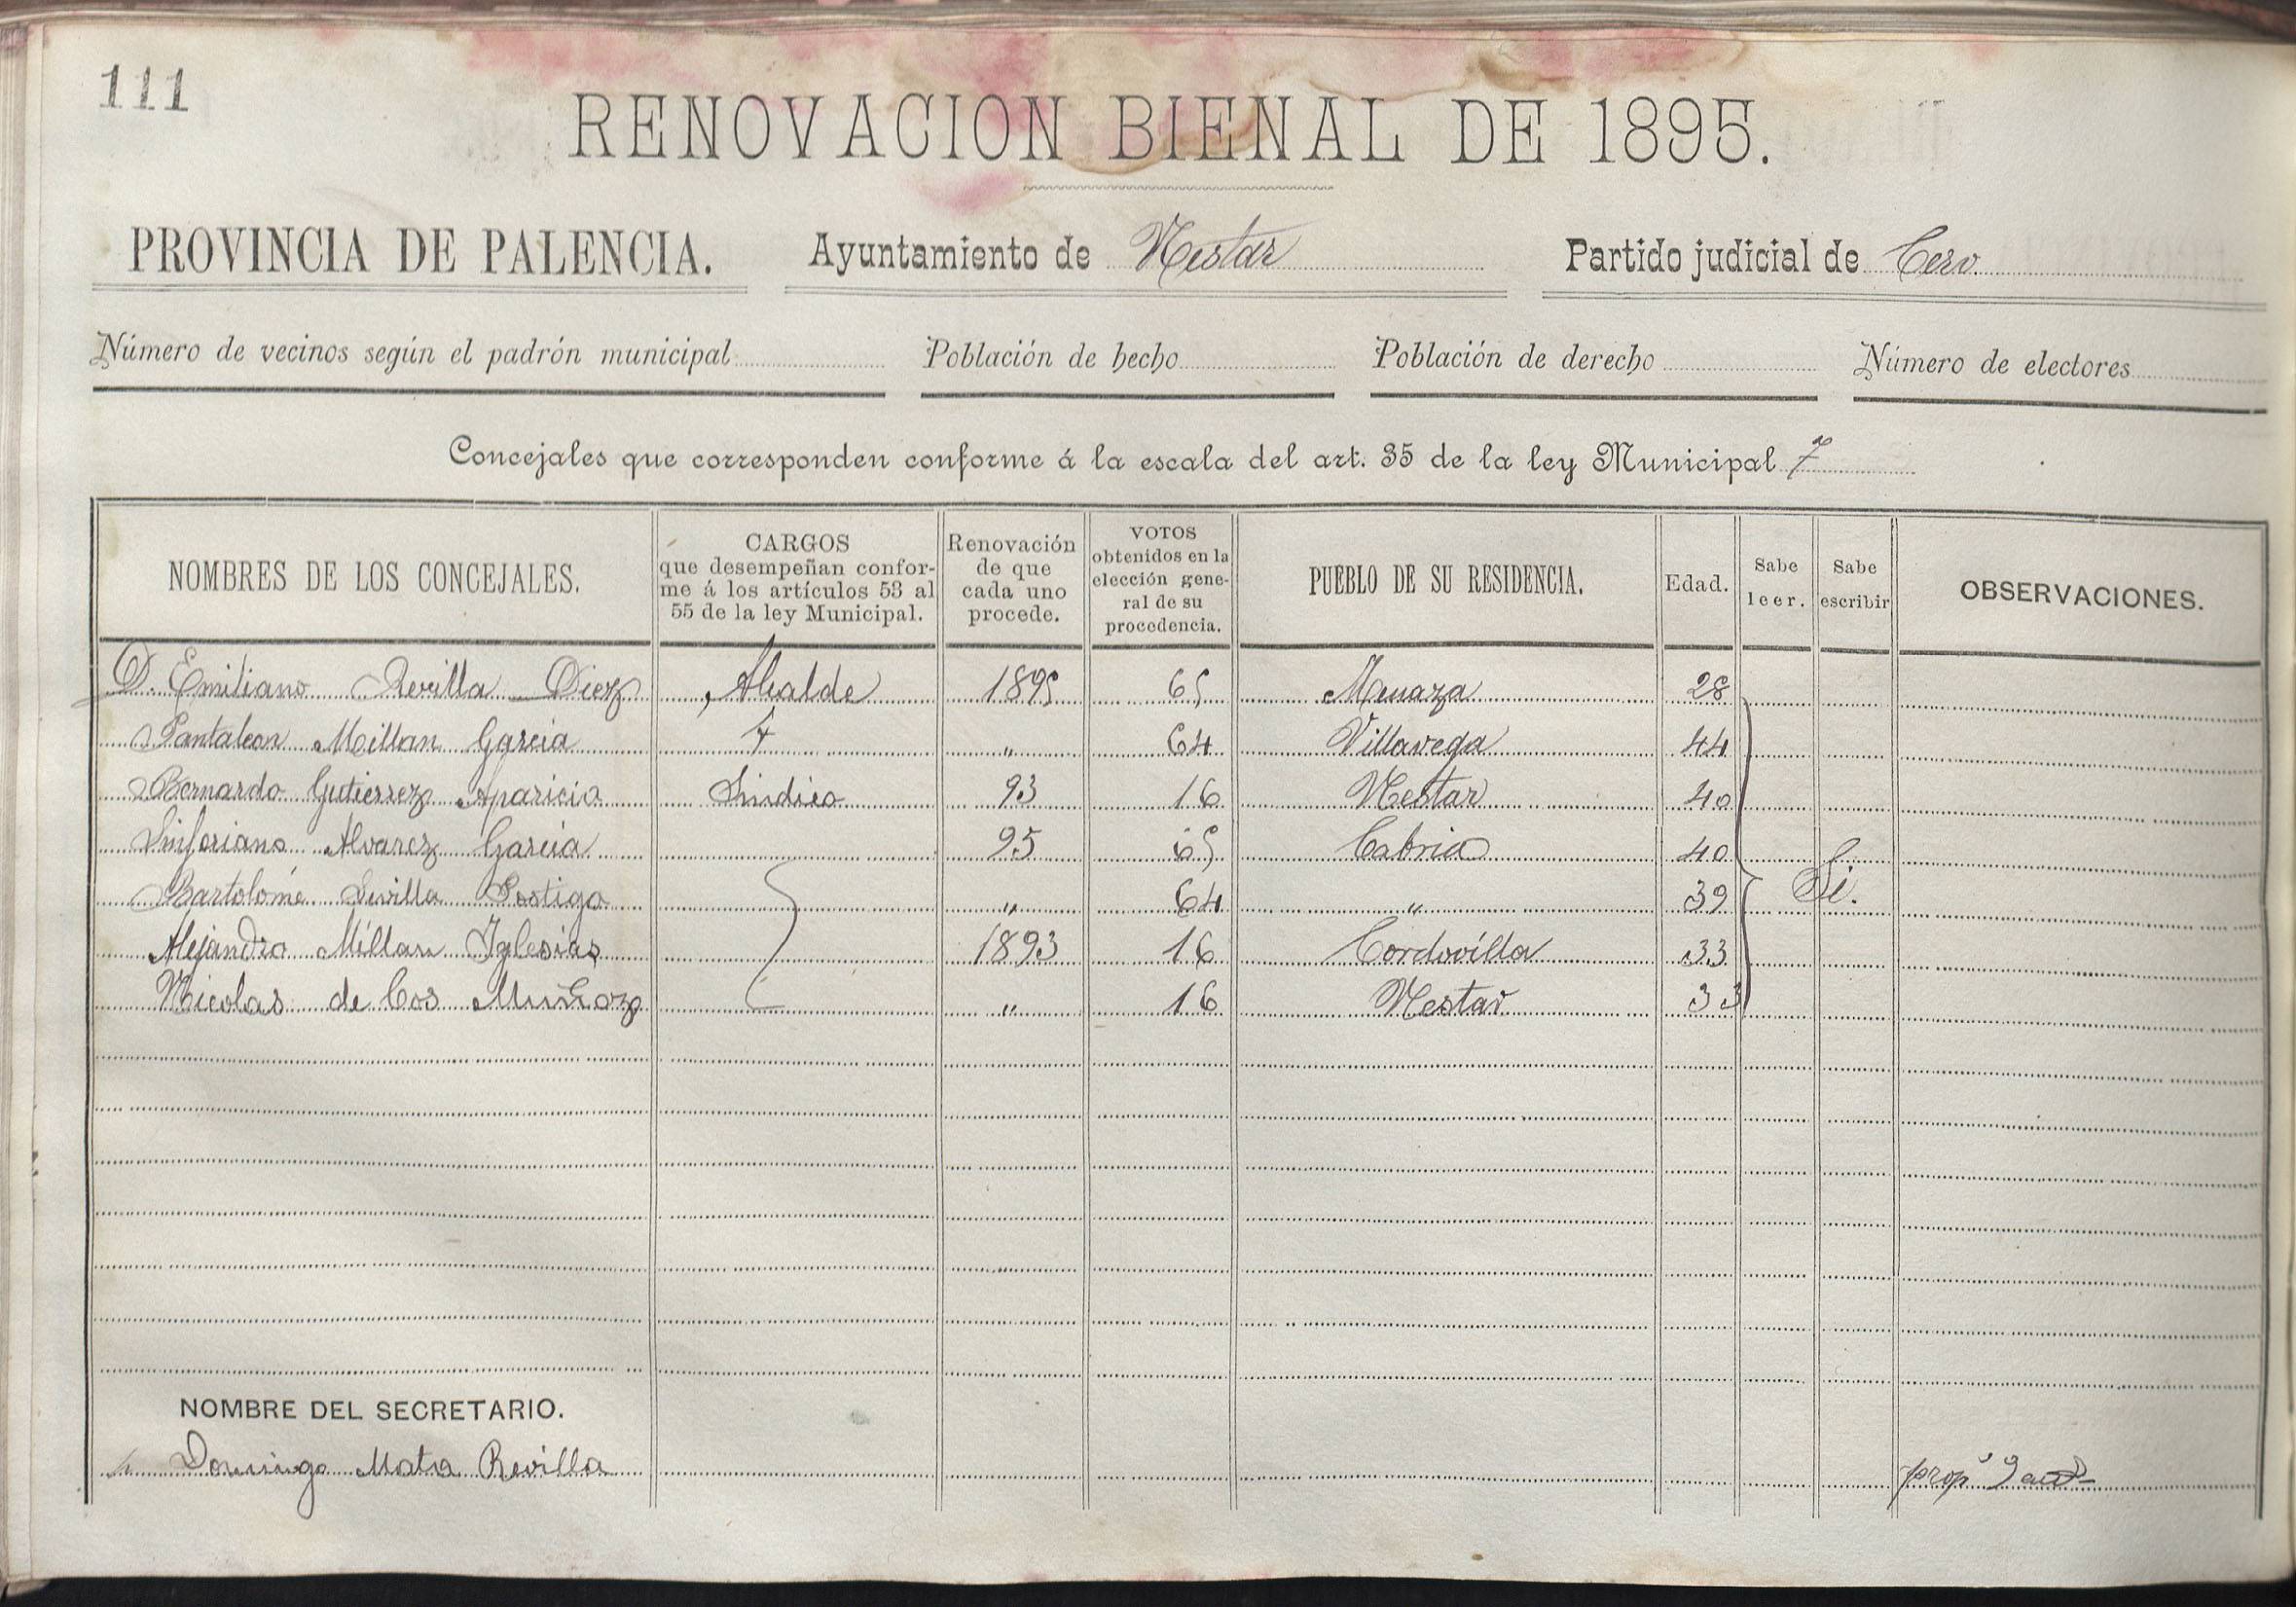 111
RENOVACION BIENAL DE 1895.
PROVINCIA DE PALENCIA. Ayuntamiento de Nestar Partido judicial de Cerv.
Número de vecinos según el padrón municipal Población de hecho Población de derecho Número de electores
Concejales que corresponden conforme á la escala del art. 35 de la ley Municipal 7
NOMBRES DE LOS CONCEJALES. CARGOS que desempeñan confor- me á los artículos 53 al 55 de la ley Municipal. Renovación de que cada uno procede. VOTOS obtenidos en la elección gene- ral de su procedencia. PUEBLO DE SU RESIDENCIA. Edad. Sabe leer. Sabe escribir OBSERVACIONES.
D. Emiliano Revilla Diez Alcalde 1895 65 Menaza 28
Pantaleon Millan Garcia " 64 Villavega 44
Bernardo Gutierrez Aparicio Sindico 93 16 Nestar 40
Sinforiano Alvarez Garcia 95 65 Cabria 40
Bartolomé Sevilla Postigo " 64 " 39 Si.
Alejandro Millan Iglesias 1893 16 Cordovilla 33
Nicolas de Cos Muñoz " 16 Nestar 33
NOMBRE DEL SECRETARIO.
Domingo Mata Revilla